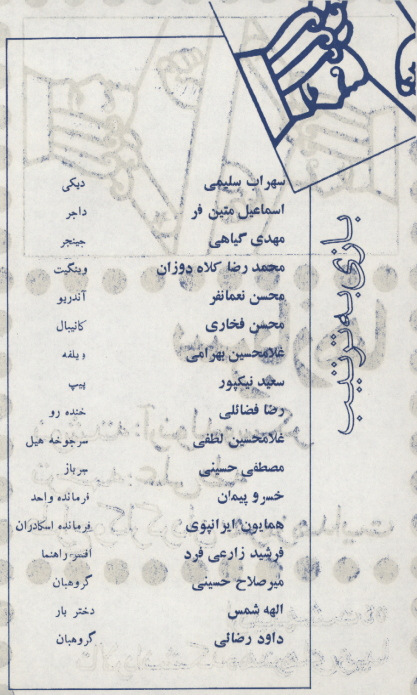 بازی به ترتیب
سهراب سلیمی دیکی
اسماعیل متین فر داجر
مهدی گیاهی جینجر
محمد رضا کلاه دوزان وینگیت
محسن نعمانفر آندریو
محسن فخاری کانیبال
غلامحسین بهرامی ویلفه
سعید نیکپور پیپ
رضا فضائلی خنده رو
غلامحسین لطفی سرجوخه هیل
مصطفی حسینی سرباز
خسرو پیمان فرمانده واحد
همایون ایرانپوی فرمانده اسکادران
فرشید زارعی فرد افسر راهنما
میرصلاح حسینی گروهبان
الهه شمس دختر بار
داود رضائی گروهبان